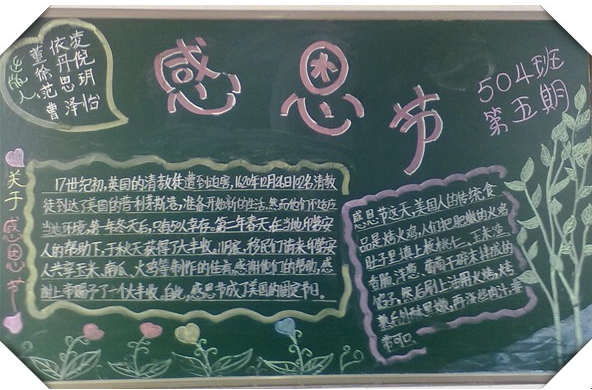 感恩节
504班
第五期
出版人
凌倪玥怡
依丹思泽
董徐范曹
关于感恩节
17世纪初,英国的清教徒遭到迫害,1620年12月26日102名清教
徒到达了美国的普利茅斯港,准备开始新的生活,然而他们不适应
当地环境,第一年冬天后,只有50人幸存。第二年春天,在当地印第安
人的帮助下,于秋天获得了大丰收,11月底,移民们请来印第安
人共享玉米、南瓜、火鸡等制作的佳肴,感谢他们的帮助,感
谢上帝赐予了一个大丰收。自此,感恩节成了美国的固定节日。
感恩节这天,美国人的传统食
品是烤火鸡,人们把肥嫩的火鸡
肚子里填上核桃仁、玉米渣、
香肠、洋葱、葡萄干碎末拌成的
馅子,然后刷上油用火烤,烤
熟后外酥里嫩,再浇些卤汁,非
常可口。